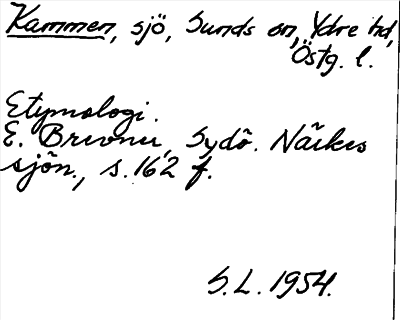 Kammen, sjö, Sunds sn, Ydre hd,
Östg. l.
Etymologi.
E. Brevner, Sydö. Närkes
sjön., s. 162 f.
S.L. 1954.